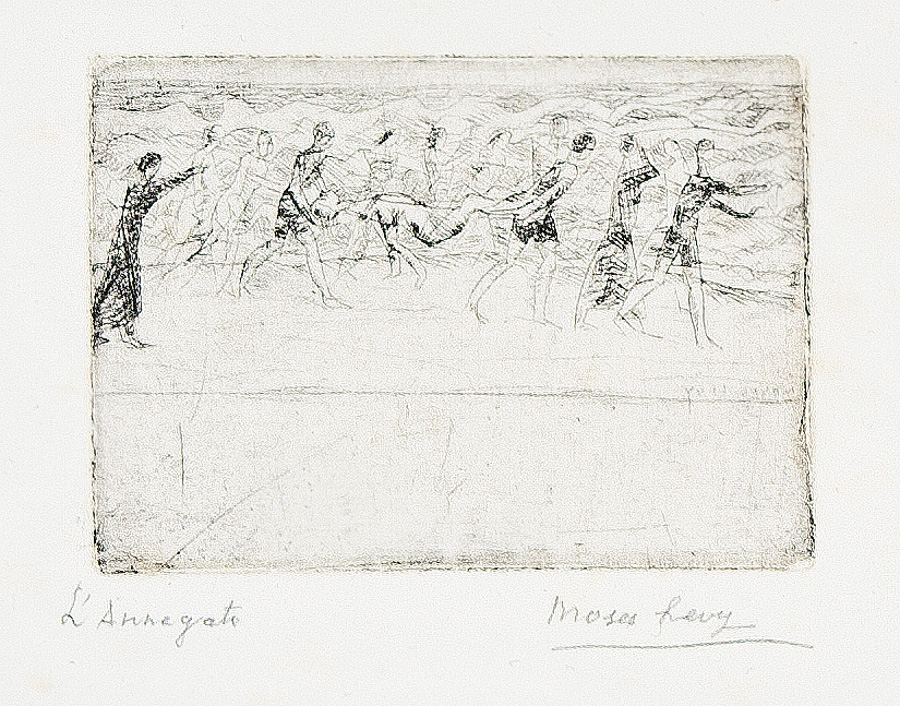 L'Annegato
Moses Levy